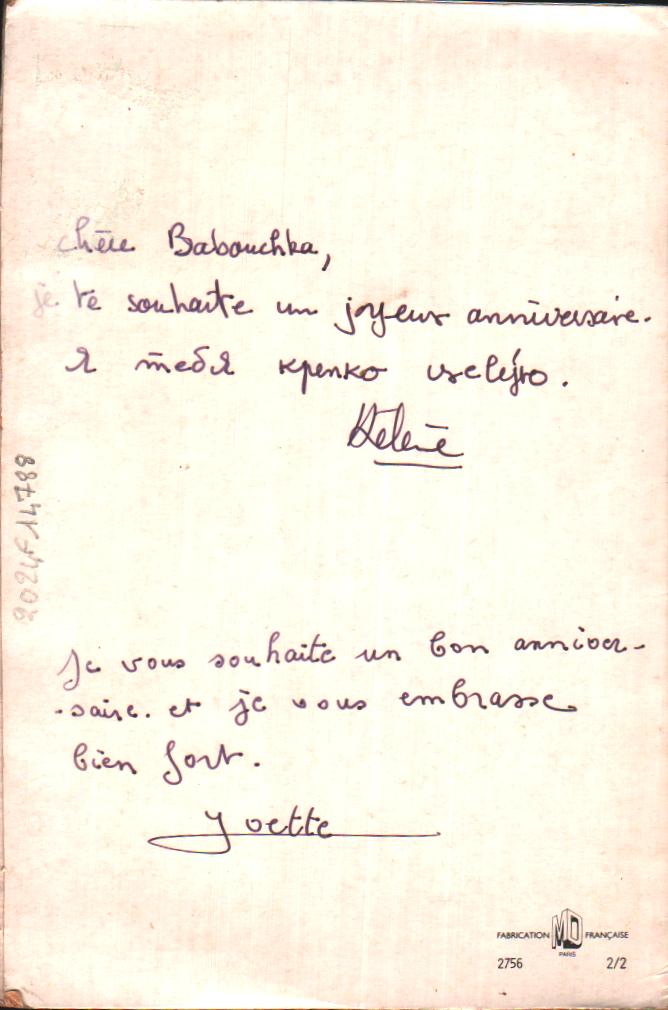 chère Babouchka,
je te souhaite un joyeux anniversaire.
Я тебя крепко целую.
Hélène
Je vous souhaite un bon anniver-
-saire. et je vous embrasse
bien fort.
Yvette
2024F14788
FABRICATION MD FRANÇAISE
PARIS
2756 2/2